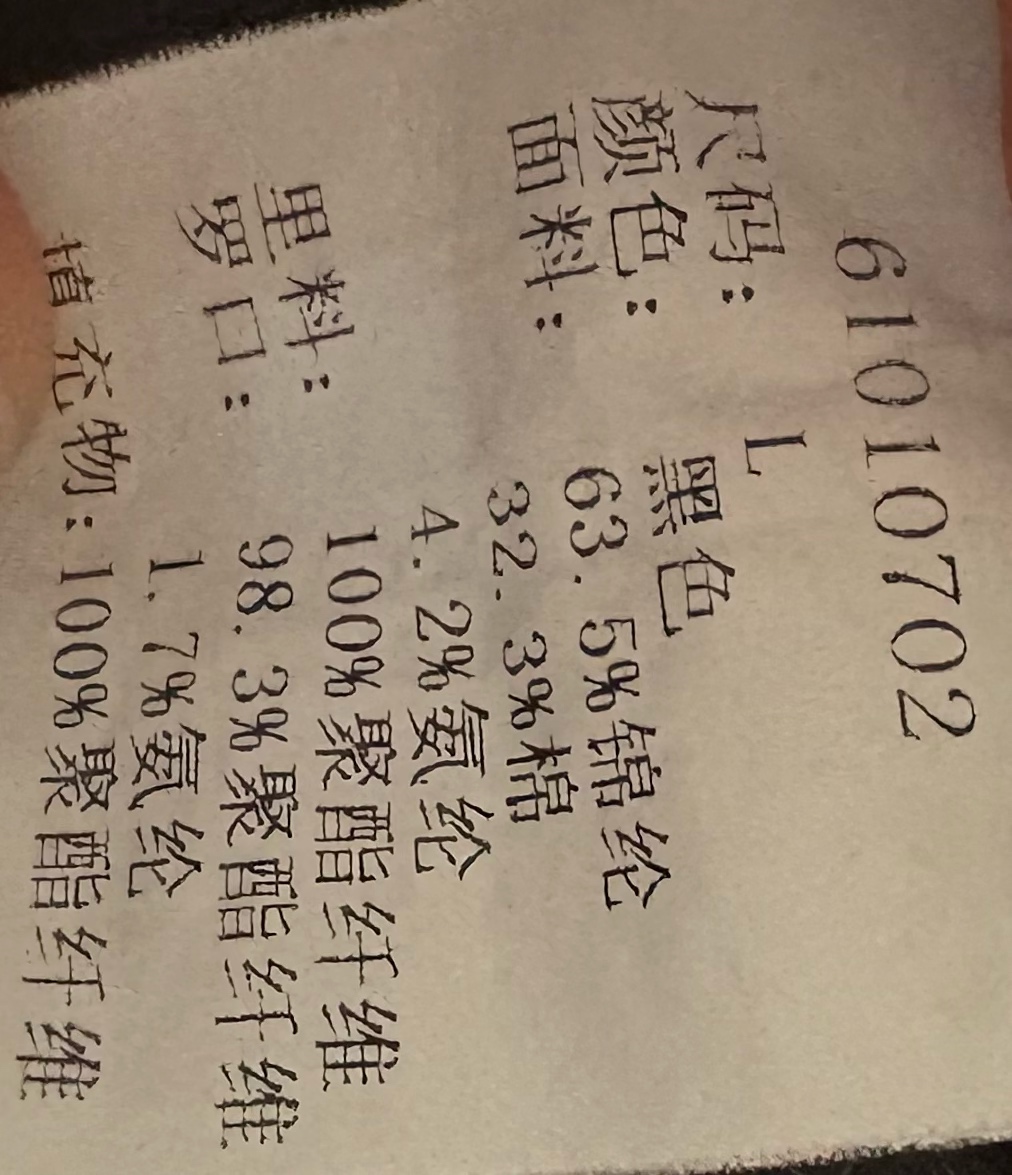 61010702
尺码： L
颜色： 黑色
面料： 63.5%锦纶
32.3%棉
4.2%氨纶
里料： 100%聚酯纤维
罗口： 98.3%聚酯纤维
1.7%氨纶
填充物：100%聚酯纤维